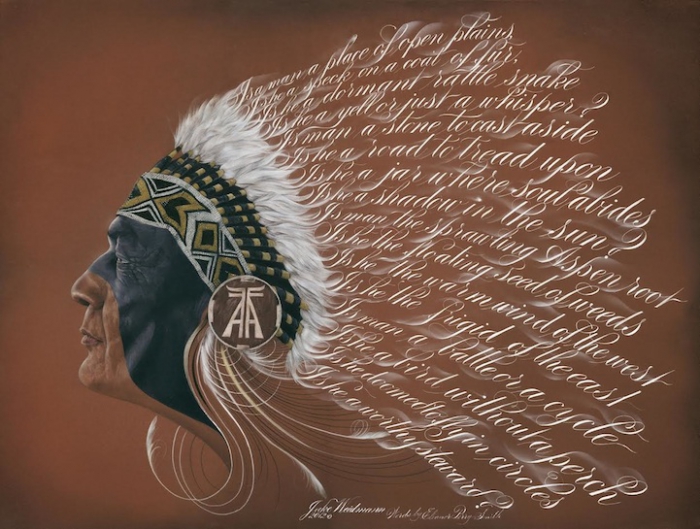 Is a man a place of open plains,
Is he a speck on a coat of fur;
Is it a dormant rattle snake
Is he a yell or just a whisper?
Is man a stone to cast aside
Is he a road to tread upon
Is he a jar where soul abides
Is he a shadow in the sun?
Is man the sprawling Aspen root
Is he the floating seed of weeds
Is he the warm wind of the west
Is he the frigid of the east
Is man a battle or a cycle
Is he a bird without a perch
Is he comets for in circles
Is he a worthy steward?
Jake Weidmann
2012 ©
Words by Perry Smith
AA